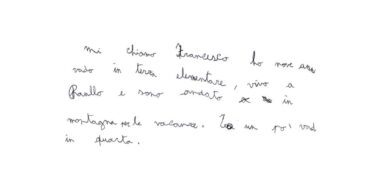 mi chiamo Francesco ho nove anni
vado in terza elementare, vivo a
Rallo e sono andato in
montagna per le vacanze. un po'
in quarta.